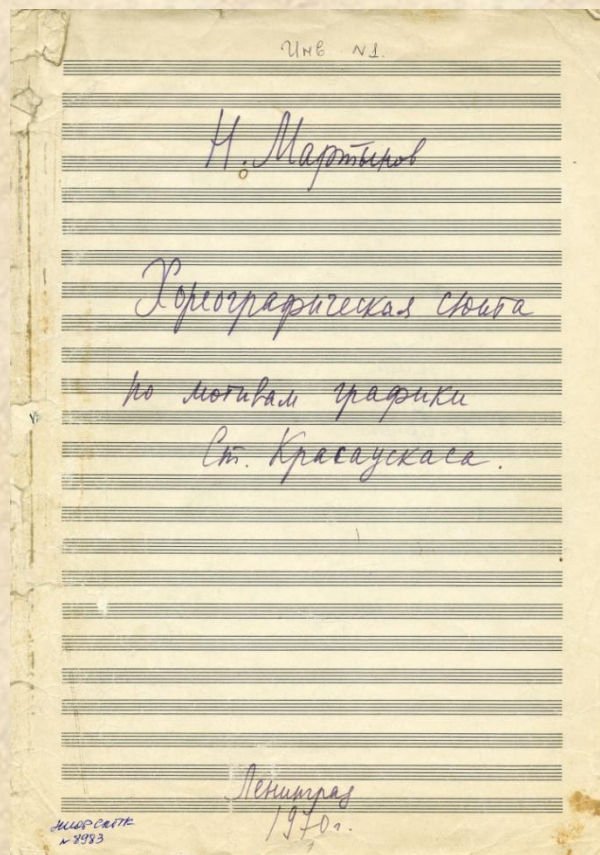 Инв N1.
Н. Мартынов
Хореографическая сюита
по мотивам графики
Ст. Красаускаса.
Ленинград
1970 г.
НИОР СПбГК
N 8983